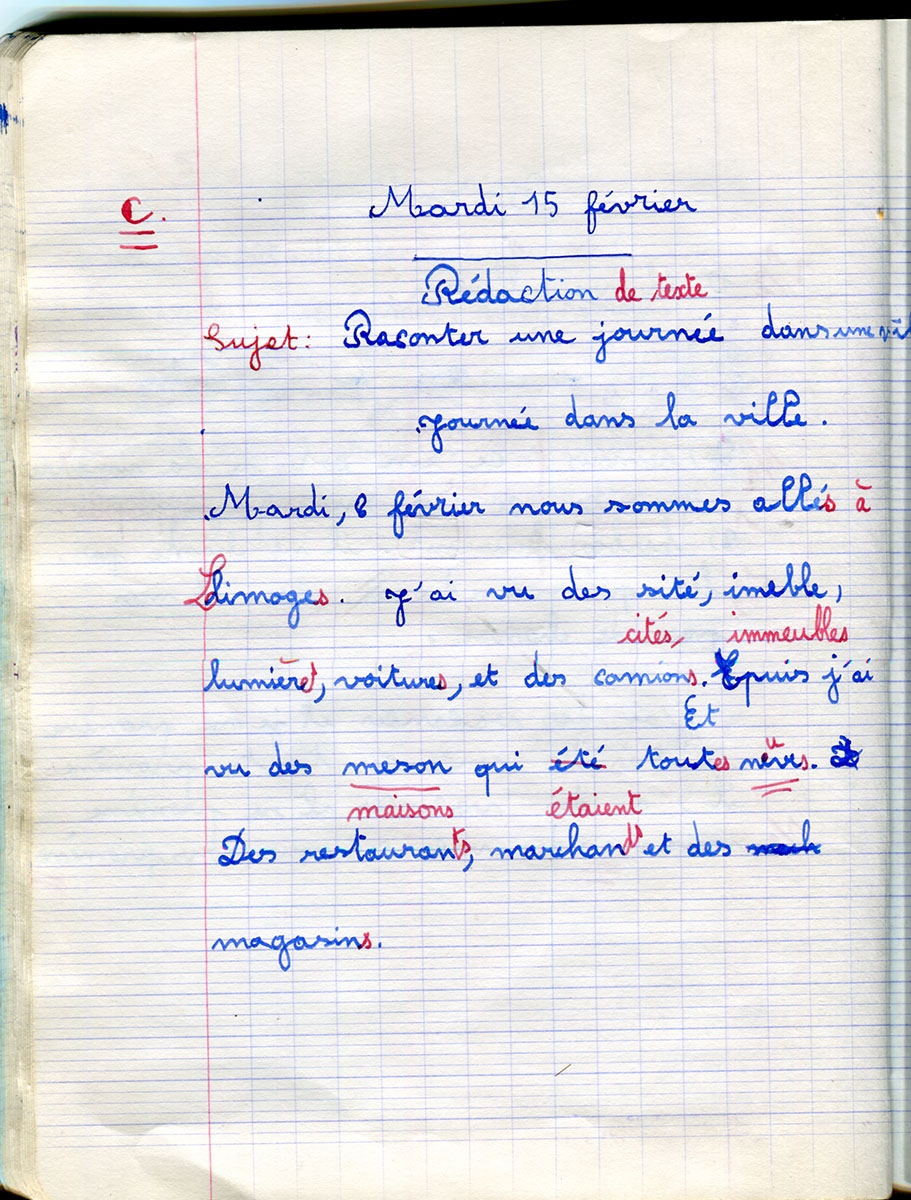 C.
Mardi 15 février
Rédaction de texte
Sujet: Raconter une journée dans une
Journée dans la ville.
Mardi, 8 février nous sommes allés à
Limoges. J'ai vu des sité, imeble,
cités, immeubles
lumières, voitures, et des camions. Epuis j'ai
Et
vu des meson qui été toutes neuves.
maisons étaient
Des restaurants, marchands et des
magasins.